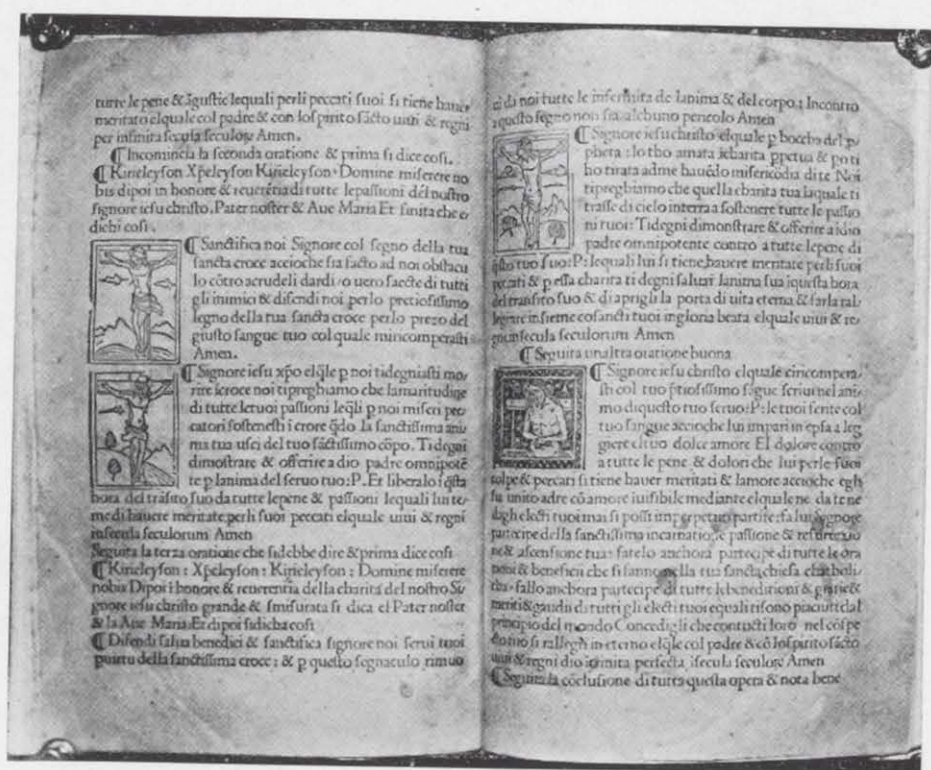 tutte le pene & Igustie lequali perli peccati suoi si tiene hauer
meritato elquale col padre & con lospirito sãcto uiui & regni
per infinita secula seculorũ Amen.
¶ Incomincia la seconda oratione & prima si dice cosi.
¶ Kirieleyson Xp̃eleyson Kirieleyson. Domine miserere no
bis dipoi in honore & reuerẽtia di tutte lepassioni del nostro
signore iesu christo. Pater noster & Aue Maria Et finita che e
dichi cosi.
¶ Sanctifica noi Signore col segno della tua
sancta croce accioche sia facto ad noi obstacu
lo cõtro acrudeli dardi / o uero saecte di tutti
gli inimici & difendi noi per lo pretiosissimo
legno della tua sancta croce per lo prezo del
giusto sangue tuo col quale miricomperasti
Amen.
¶ Signore iesu xp̃o elq̃le p noi tidegniasti mo
rire icroce noi tipreghiamo che lamaritudine
di tutte letuoi passioni leq̃li p noi miseri pec
catori sostenesti i crore q̃do la sanctissima ani
ma tua usci del tuo sãctissimo cõpo. Ti degni
dimostrare & offerire a dio padre omnipotẽ
te p lanima del seruo tuo: P. Et liberalo i q̃sta
hora del trãsito suo da tutte lepene & passioni lequali lui te
me di hauere meritate perli suoi peccati elquale uiui & regni
in secula seculorum Amen
Seguita la terza oratione che sidebbe dire & prima dice cosi
¶ Kirieleyson: Xp̃eleyson: Kirieleyson: Domine miserere
nobis Dipoi i honore & reuerentia della charita del nostro Si
gnore iesu christo grande & smisurata si dica el Pater noster
& la Aue Maria. Et dipoi sidicha cosi
¶ Difendi salua benedici & sanctifica signore noi serui tuoi
puirtu della sanctissima croce: & p questo segnaculo rimuo
ui da noi tutte le infermita de lanima & del corpo: Incontro
a questo segno non sia alchuno pericolo Amen
¶ Signore iesu christo elquale p boccha del p
pheta: Io tho amata icharita ppetua & po ti
ho tirata adme hauẽdo misericordia di te Noi
ti preghiamo che quella charita tua laquale ti
trasse di cielo interra a sostenere tutte le passio
ni tuoi: Tidegni dimostrare & offerire a idio
padre omnipotente contro a tutte lepene di
q̃sto tuo suo: P: lequali lui si tiene hauere meritate perli suoi
peccati & p essa charita ti degni saluar lanima sua iquesta hora
del transito suo & di aprigli la porta di uita eterna & farla ral
legrare insieme cosancti tuoi ingloria beata elquale uiui & re
gni insecula seculorum Amen
¶ Seguita unaltra oratione buona
¶ Signore iesu christo elquale ciricompera
sti col tuo p̃tiosissimo sãgue scriui nel ani
mo di questo tuo seruo: P: le tuoi ferite col
tuo sangue accioche lui impari in epsa a leg
giere el tuo dolce amore El dolore contro
a tutte le pene & dolori che lui perle suoi
colpe & peccati si tiene hauer meritati & lamore accioche egli
sia unito adte cõ amore iuisibile mediante elquale ne da te ne
dagli electi tuoi mai si possi imperpetuo partire: fa lui Signore
partecipe della sanctissima incarnatione passione & resurrexio
ne & ascensione tua: fatelo anchora partecipe di tutte le ora
tioni & beneficii che si fanno nella tua sancta chiesa chatholi
cha: fallo anchora partecipe di tutte le benedictioni & gratie &
meriti & gaudii di tutti gli electi tuoi equali tisono piaciuti dal
principio del mondo Concedigli che contucti loro nel cõspe
cto tuo si rallegri in eterno elq̃le col padre & cõ lospirito sãcto
uiui & regni dio itrinita perfecta isecula seculorũ Amen
¶ Seguita la cõclusione di tutta questa opera & nota bene